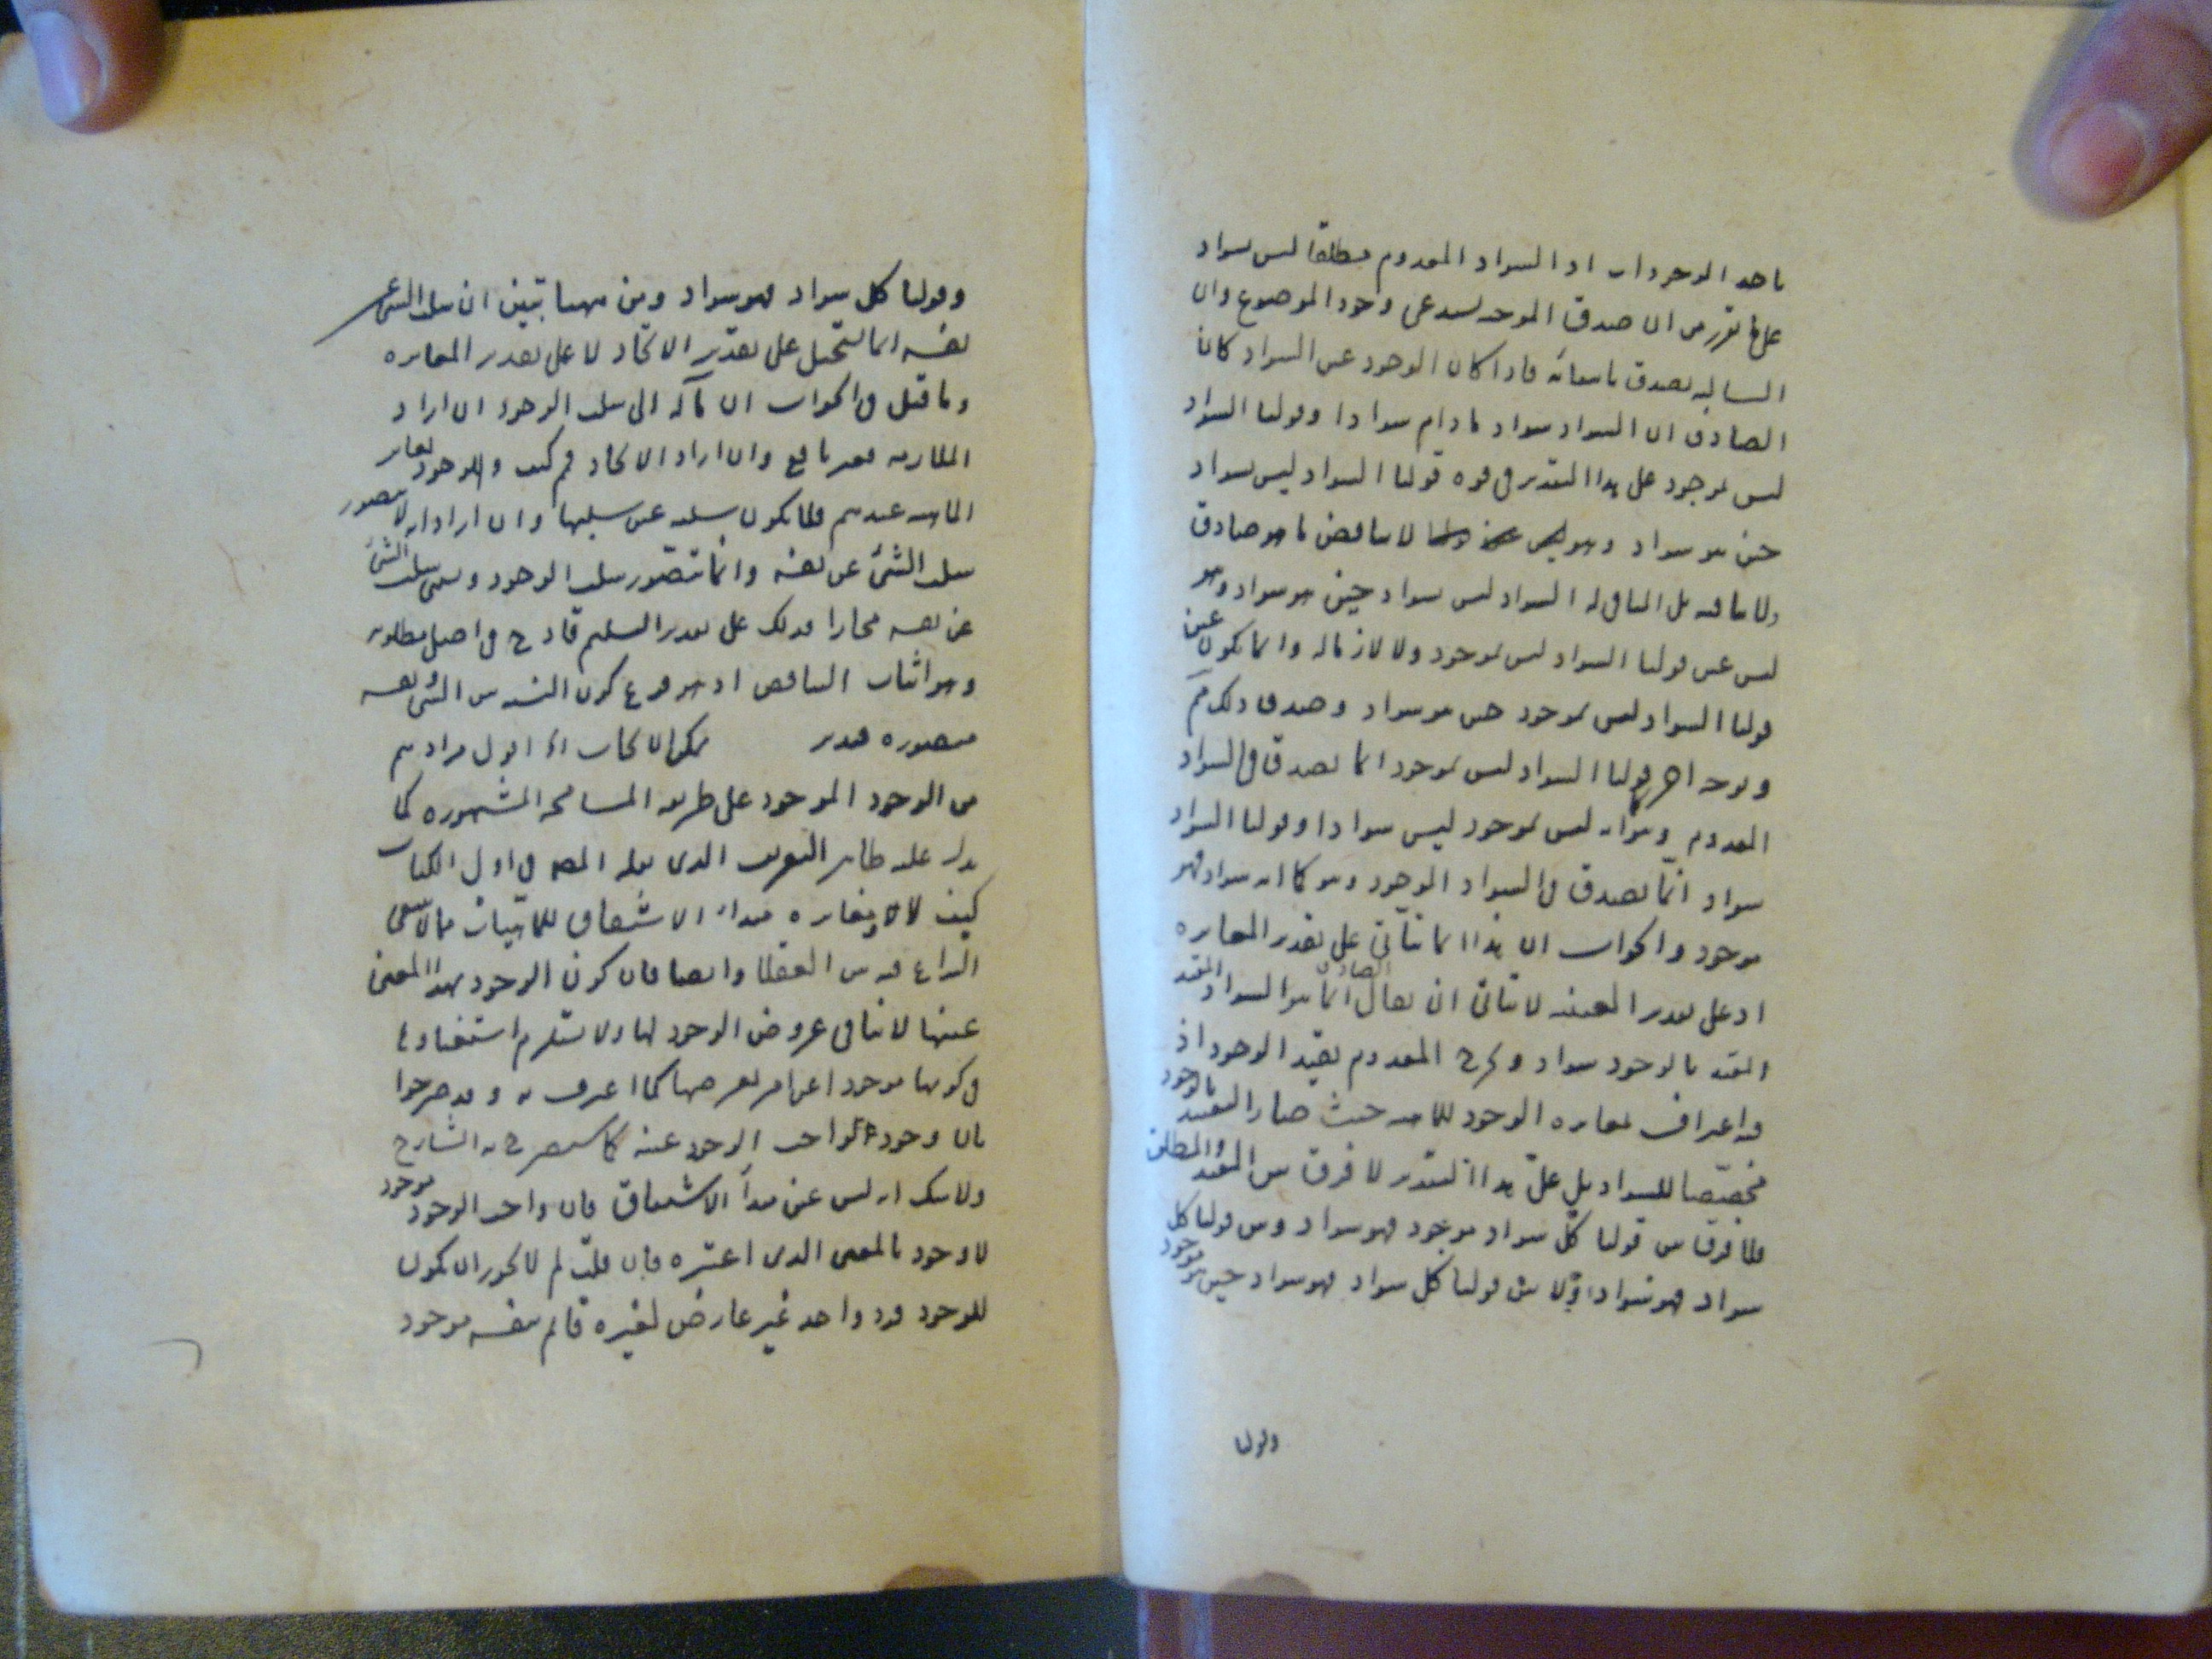 باحد الوجودات اذ السواد المعدوم مطلقا ليس سواد
على ما تقرر من ان صدق الموجبه يستدعى وجود الموضوع وان
السالبه تصدق بانتفائه فاذا كان الوجود عين السواد كان
الصادق ان السواد سواد ما دام سوادا وقولنا السواد
ليس بموجود على هذا التقدير فى قوه قولنا السواد ليس بسواد
حين هو سواد وهو لا يناقض ما هو صادق
ولا ينافيه بل المنافى له السواد ليس سواد حين هو سواد وهو
ليس عين قولنا السواد ليس بموجود ولا لازما له وانما يكون عين
قولنا السواد ليس بموجود حين هو سواد وصدق ذلك مم
وبوجه اخر قولنا السواد ليس بموجود انما يصدق فى السواد
المعدوم وهو انه ليس بموجود ليس سوادا وقولنا السواد
سواد انما يصدق فى السواد الموجود وهو كما انه سواد فهو
موجود والجواب ان هذا انما يتأتى على تقدير المغايره
اذ على تقدير العينيه لا يتأتى ان يقال الصادق انما هو السواد المقيد
المقيد بالوجود سواد ويخرج المعدوم بقيد الوجود اذ
فيه اعتراف بمغايره الوجود للماهيه حيث صار التقييد بالوجود
مخصصا للسواد بل على هذا التقدير لا فرق بين المقيد والمطلق
فلا فرق بين قولنا كل سواد موجود فهو سواد وبين قولنا كل
سواد فهو سواد ولا بين قولنا كل سواد فهو سواد حين هو موجود
وقولنا
وقولنا كل سواد فهو سواد ومن ههنا تبين ان سلب الشىء عن
نفسه انما يستحيل على تقدير الاتحاد لا على تقدير المغايره
وما قيل فى الجواب ان مآله الى سلب الوجود ان اراد
الملازمه فغير نافع وان اراد الاتحاد فمم كيف والوجود يغاير
الماهيه عندهم فلا يكون سلبه عين سلبها وان اراد انه لا يتصور
سلب الشىء عن نفسه وانما يتصور سلب الوجود ويسمى سلب الشىء
عن نفسه مجازا فذلك على تقدير التسليم قادح فى اصل مطلوبه
وهو اثبات التناقض اذ هو فرع كون النسبه بين الشىء ونفسه
متصوره فتدبر يمكن الايجاب اه اقول مرادهم
من الوجود الموجود على طريقه المسامحه المشهوره كما
يدل عليه ظاهر التعريف الذى نقله المص فى اول الكتاب
كيف لا ومغايره مبدء الاشتقاق للماهيات مما لا ينبغى
النزاع فيه بين العقلا وايضا فان كون الوجود بهذا المعنى
عينها لا ينافى عروض الوجود لها ولا يستلزم استغناءها
فى كونها موجودا عن امر يعرضها كما اعترف به وقد صرحوا
بان وجود الواجب الوجود عينه كما سيصرح به الشارح
ولا شك انه ليس عين مبدأ الاشتقاق فان واجب الوجود موجود
لا وجود بالمعنى الذى اعتبره فان قلت لم لا يجوز ان يكون
للوجود فرد واحد غير عارض لغيره قائم بنفسه موجود